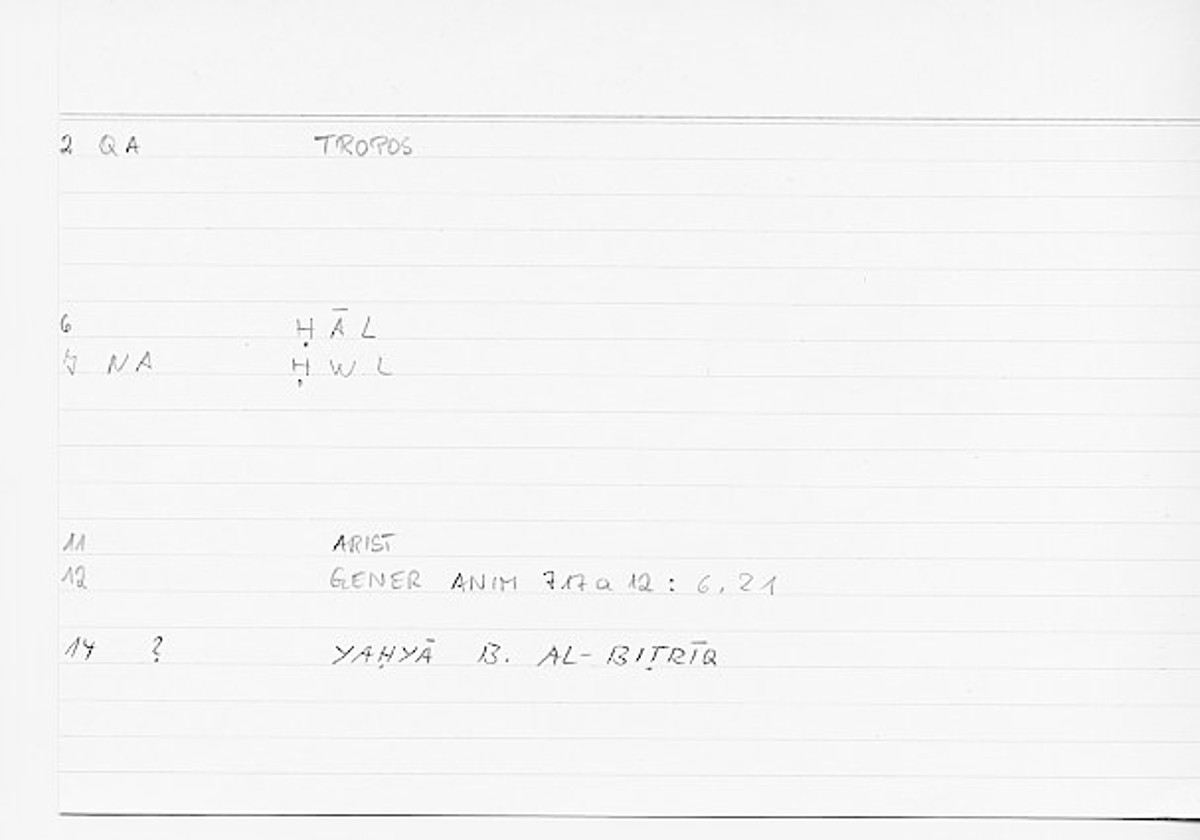 2 QA TROPOS
6 ḤĀL
7 NA ḤWL
11 ARIST
12 GENER ANIM 717a12: 6,21
14 ? YAḤYĀ B. AL-BIṬRĪQ